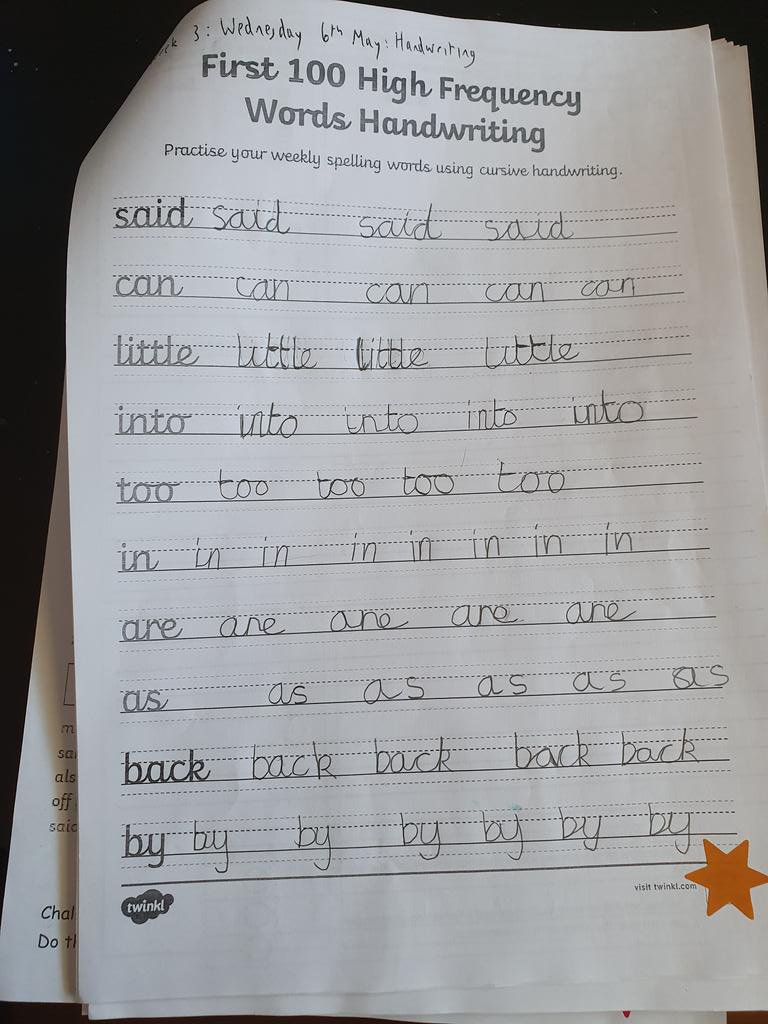 3: Wednesday 6th May: Handwriting
First 100 High Frequency
Words Handwriting
Practise your weekly spelling words using cursive handwriting.
said said said said
can can can can can
little little little little
into into into into into
too too too too too
in in in in in in in in
are are are are are
as as as as as as
back back back back back
by by by by by by by
visit twinkl.com
twinkl
als
off
Chal
Do th